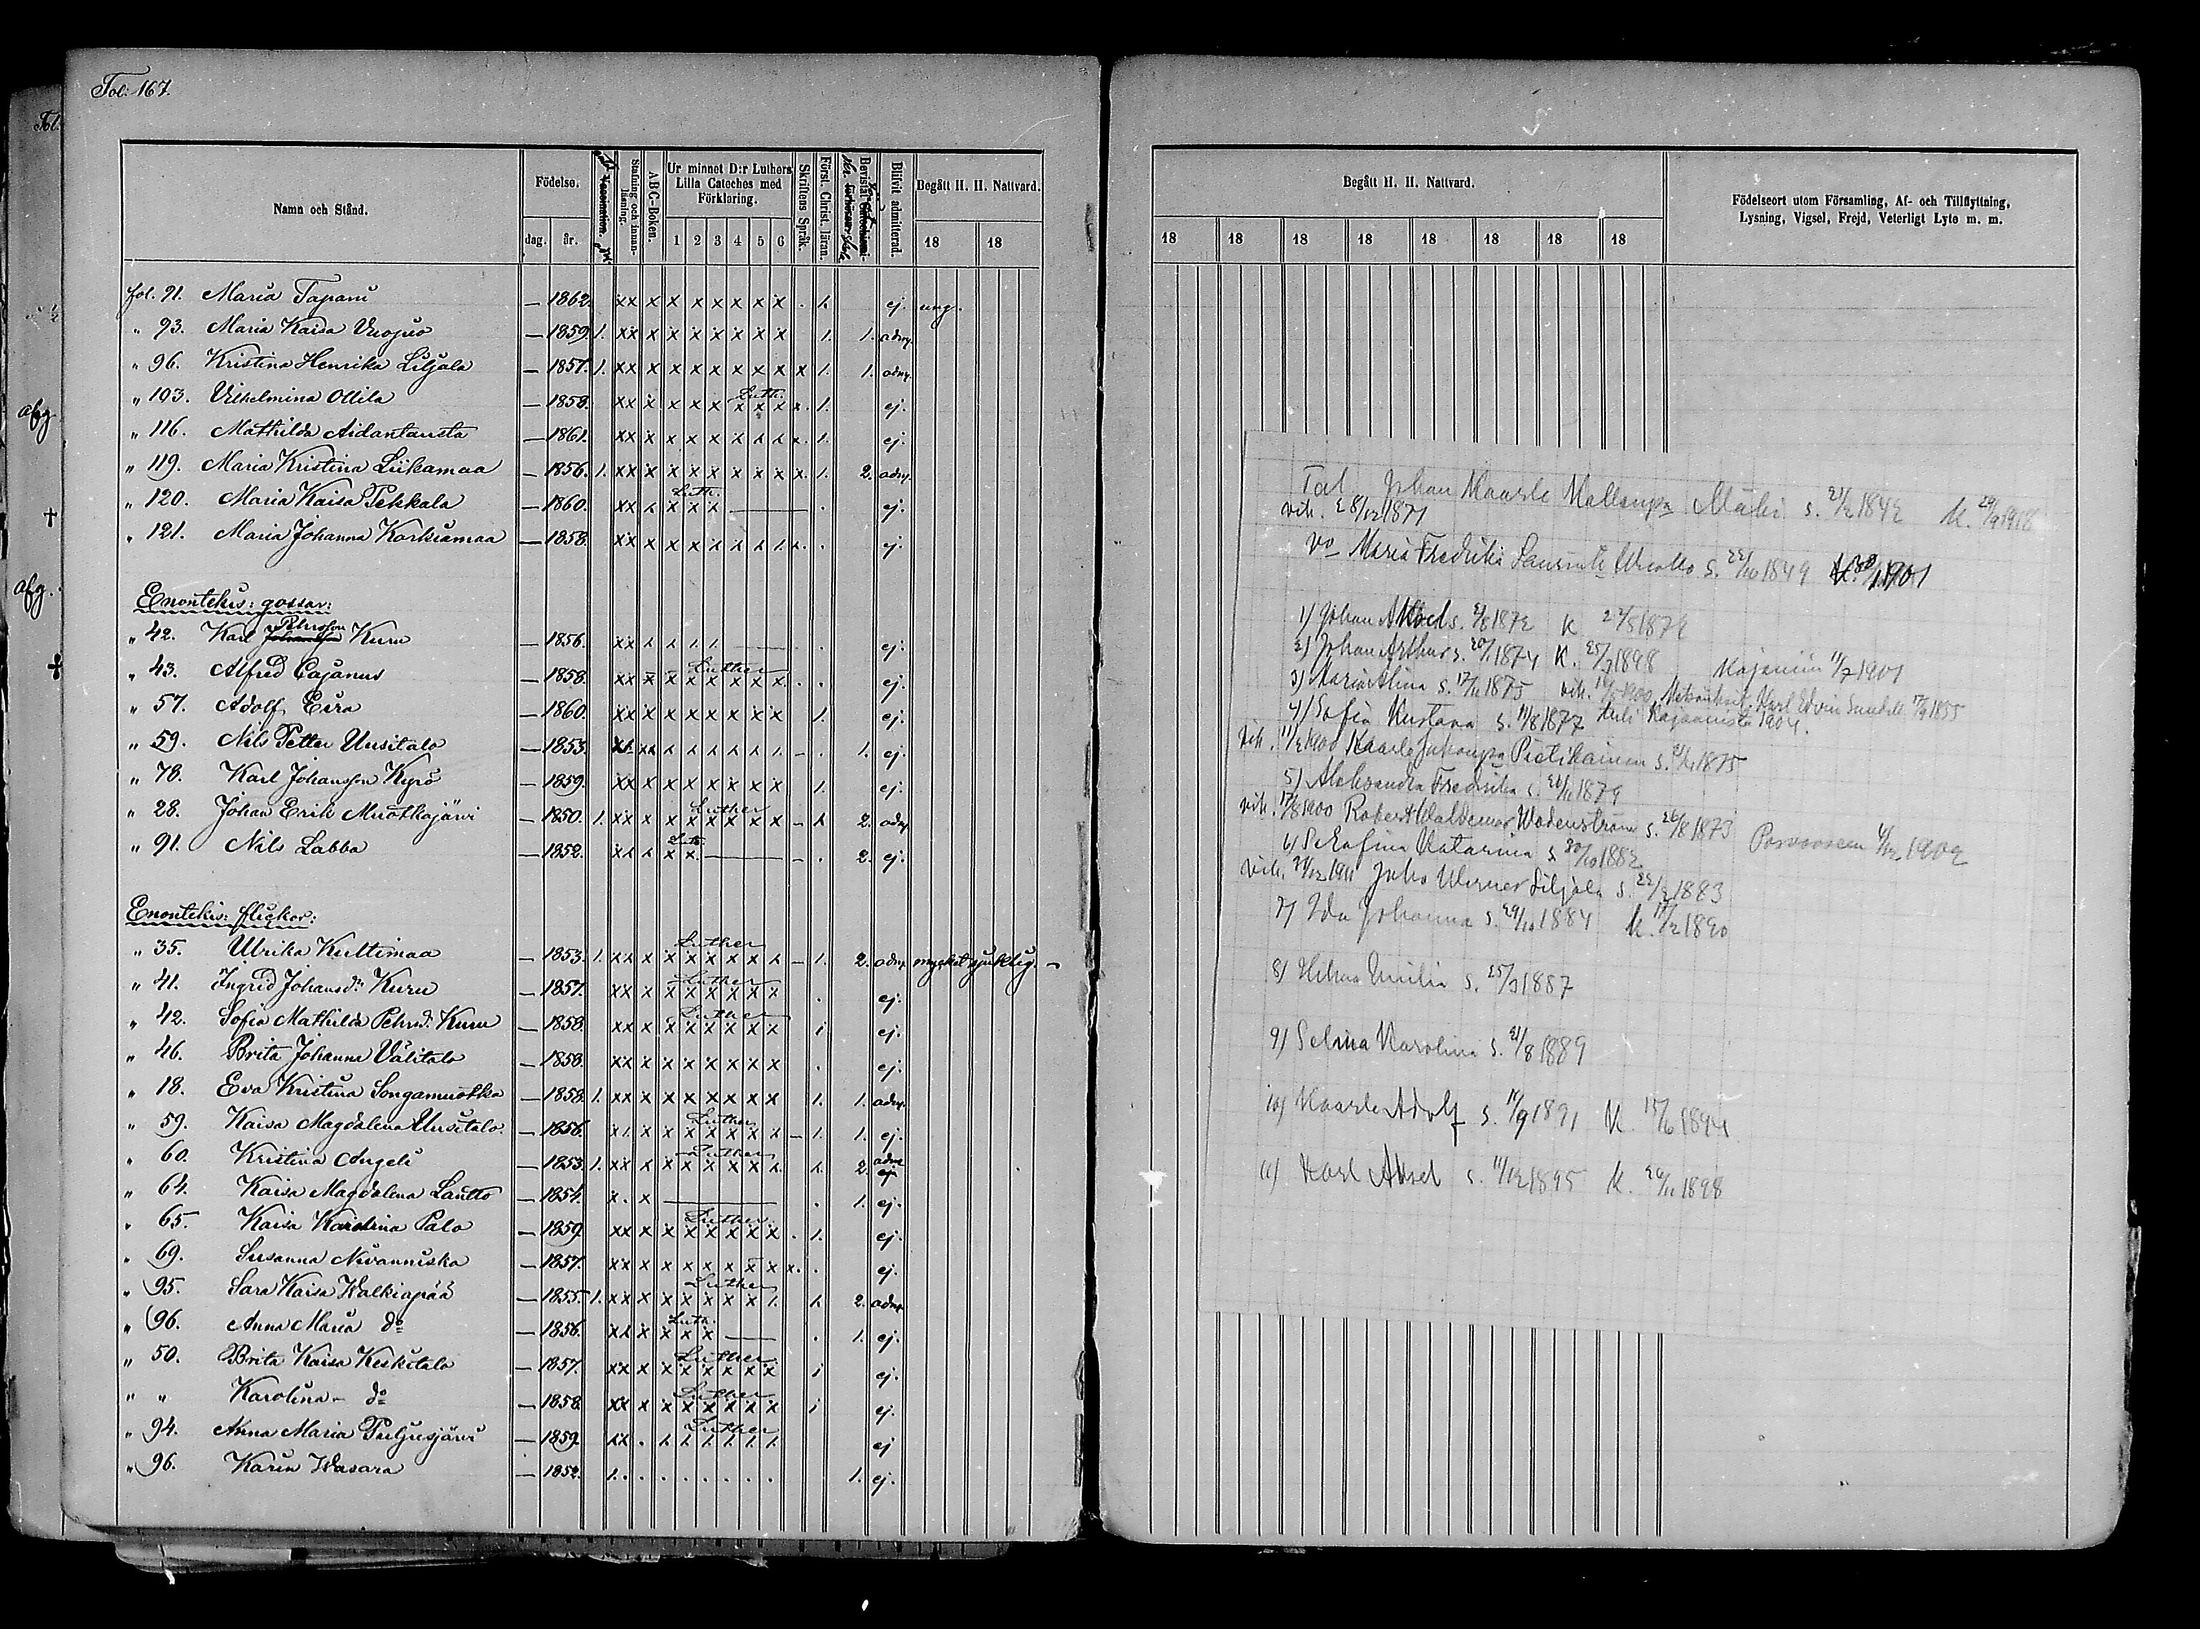 Fol: 167.
Namn och Stånd.
Födelse.
dag. år.
Vaccination.
Stafning och innan-läsning.
ABC-Boken.
Ur minnet D:r Luthers Lilla Cateches med Förklaring.
1 2 3 4 5 6
Skriftens Språk.
Först. Christ. läran.
Blifvit admitterad.
Begått H. H. Nattvard.
18 18
fol. 91. Maria Tapani — 1862. xx x x x x x x x ej. ung.
" 93. Maria Kaisa Vuojus — 1859. 1. xx x x x x x x x 1. 1. adm.
" 96. Kristina Henrika Liljala — 1857. 1. xx x x x x x x x x 1. 1. adm.
" 103. Vilhelmina Ollila — 1858. xx x x x x Luth. x x x x. 1. ej.
" 116. Mathilda Aidantausta — 1861. xx x x x x x x x x. 1. ej.
" 119. Maria Kristina Liikamaa — 1856. 1. xx x x x x x x x x. 1. 2. adm.
" 120. Maria Kaisa Pekkala — 1860. Luth. xx x x x x — . ej.
" 121. Maria Johanna Korkiamaa — 1858. xx x x x x x x x x. . ej.
Enontekis: gossar:
" 42. Karl Pehrsson Kuru — 1856. xx x x 1. 1. — ej.
" 43. Alfred Cajanus — 1858. Luther xx x x x x x x x . . ej.
" 57. Adolf Eira — 1860. xx x x x x x x x 1. ej.
" 59. Nils Petter Uusitalo — 1853. xx xx x x x x x x – . 1. ej.
" 78. Karl Johansson Kyrö — 1859. xx x x x x x x x 1. ej.
" 28. Johan Erik Muotkajärvi — 1850. 1. Luther xx x x x x x x x – x 2. adm.
" 91. Nils Labba — 1852. Luth. xx x x x. — – . 2. ej.
Enontekis: flickor:
" 35. Ulrika Kultimaa — 1853. 1. Luther xx x x x x x x x – 1. 2. adm. mycket sjuklig. –
" 41. Ingrid Johansd:r Kuru — 1857. Luther xx x x x x x x x . ej.
" 42. Sofia Mathilda Pehrsd. Kuru — 1858. Luther xx x x x x x x x 1 ej.
" 46. Brita Johanna Välitalo — 1858. xx x x x x x x x . ej.
" 18. Eva Kristina Songamuotka — 1858. 1. xx x x x x x x x 1. 1. adm.
" 59. Kaisa Magdalena Uusitalo. — 1856. Luther x 1. x x x x x x x – 1. 1. ej.
" 60. Kristina Angeli — 1853. 1. Luther xx x x x x x x x. x. 2. adm ej
" 64. Kaisa Magdalena Lautto — 1854. x . x — . 1. ej.
" 65. Kaisa Karolina Palo — 1859. Luther. xx x x x x x x x . 1. ej.
" 69. Susanna Nivanniska — 1857. xx x x x x x x x x. . ej.
" 95. Sara Kaisa Walkiapää — 1855. 1. Luther xx x x x x x x 1. x 2. adm.
" 96. Anna Maria d:o — 1856. Luth. xx x x x x — . 1. ej.
" 50. Brita Kaisa Keskitalo — 1857. Luther xx x x x x x x x 1 ej.
" " Karolina – d:o — 1858. Luther xx x x x x x x x 1 ej.
" 94. Anna Maria Puljusjärvi — 1859. Luther xx . x x 1. 1. 1. 1. ej
" 96. Karin Wasara — 1852. 1. . . . . . . . . 1. ej.
afg.
afg.
Begått H. H. Nattvard.
18 18 18 18 18 18 18 18
Födelseort utom Församling, Af- och Tillflyttning, Lysning, Vigsel, Frejd, Veterligt Lyte m. m.
Tal. Johan Kaarle Mäki s. 21/2 1842 k. 29/9 1918
vih. 28/12 1871
vo Maria Fredrika s. 22/10 1849
1) Johan Aksel s. 1872 k 1879
2) Johan Arthur s. 20/1 1874 k. 25/7 1898
3) Maria Alina s. 17/11 1875 vih. 1900 Karl Edvin 1855
Kajaaniin 11/7 1901
4) Sofia Kustava s. 11/8 1877 tuli Kajaanista 1904.
vih. 11/2 1900 Kaarle Pietikäinen s. 1875
5) Aleksandra Fredrika s. 26/11 1879
vih. 17/8 1900 Robert Waldemar Wadenström s. 26/8 1873
6) Serafina Katarina s. 30/10 1882 Porvooseen 1902
vih. 1911 Juho Werner Liljala s. 22/2 1883
7) Ida Johanna s. 29/10 1884 k. 17/2 1890
8) Hilma Emilia s. 25/3 1887
9) Selma Karolina s. 21/8 1889
10) Kaarle Adolf s. 1891 k. 15/6 1894
11) Karl Aksel s. 11/12 1895 k. 1898